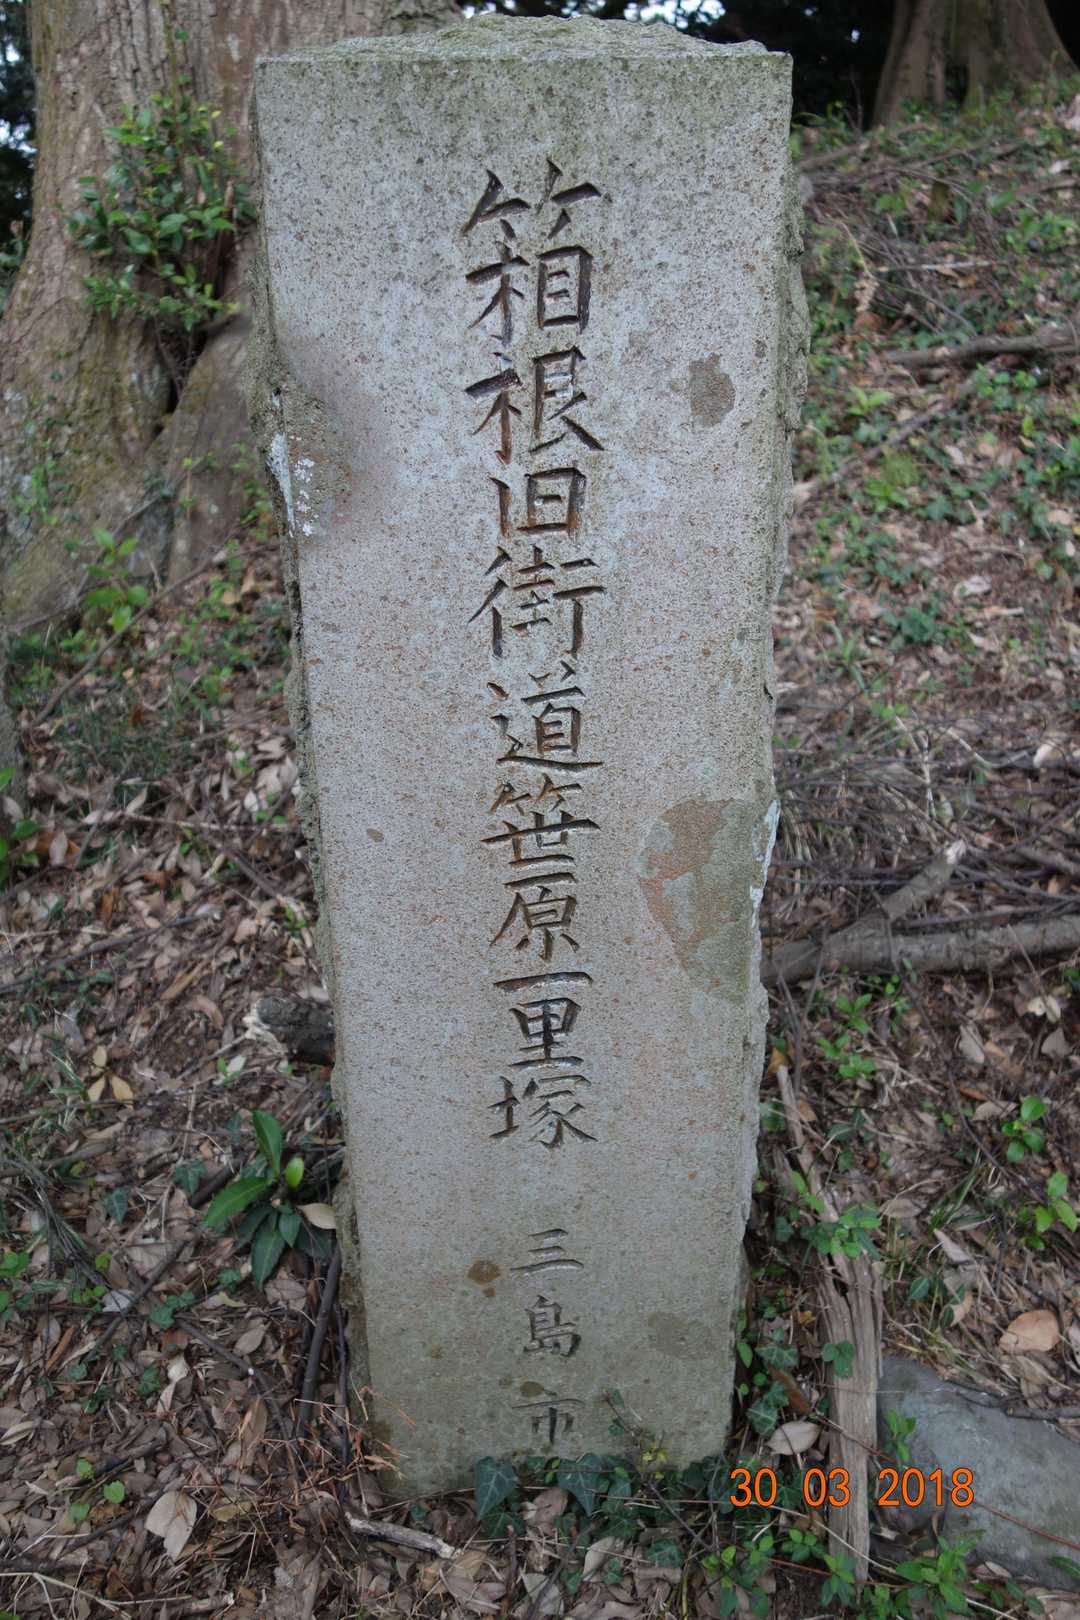 箱根旧街道笹原一里塚
三島市
30 03 2018